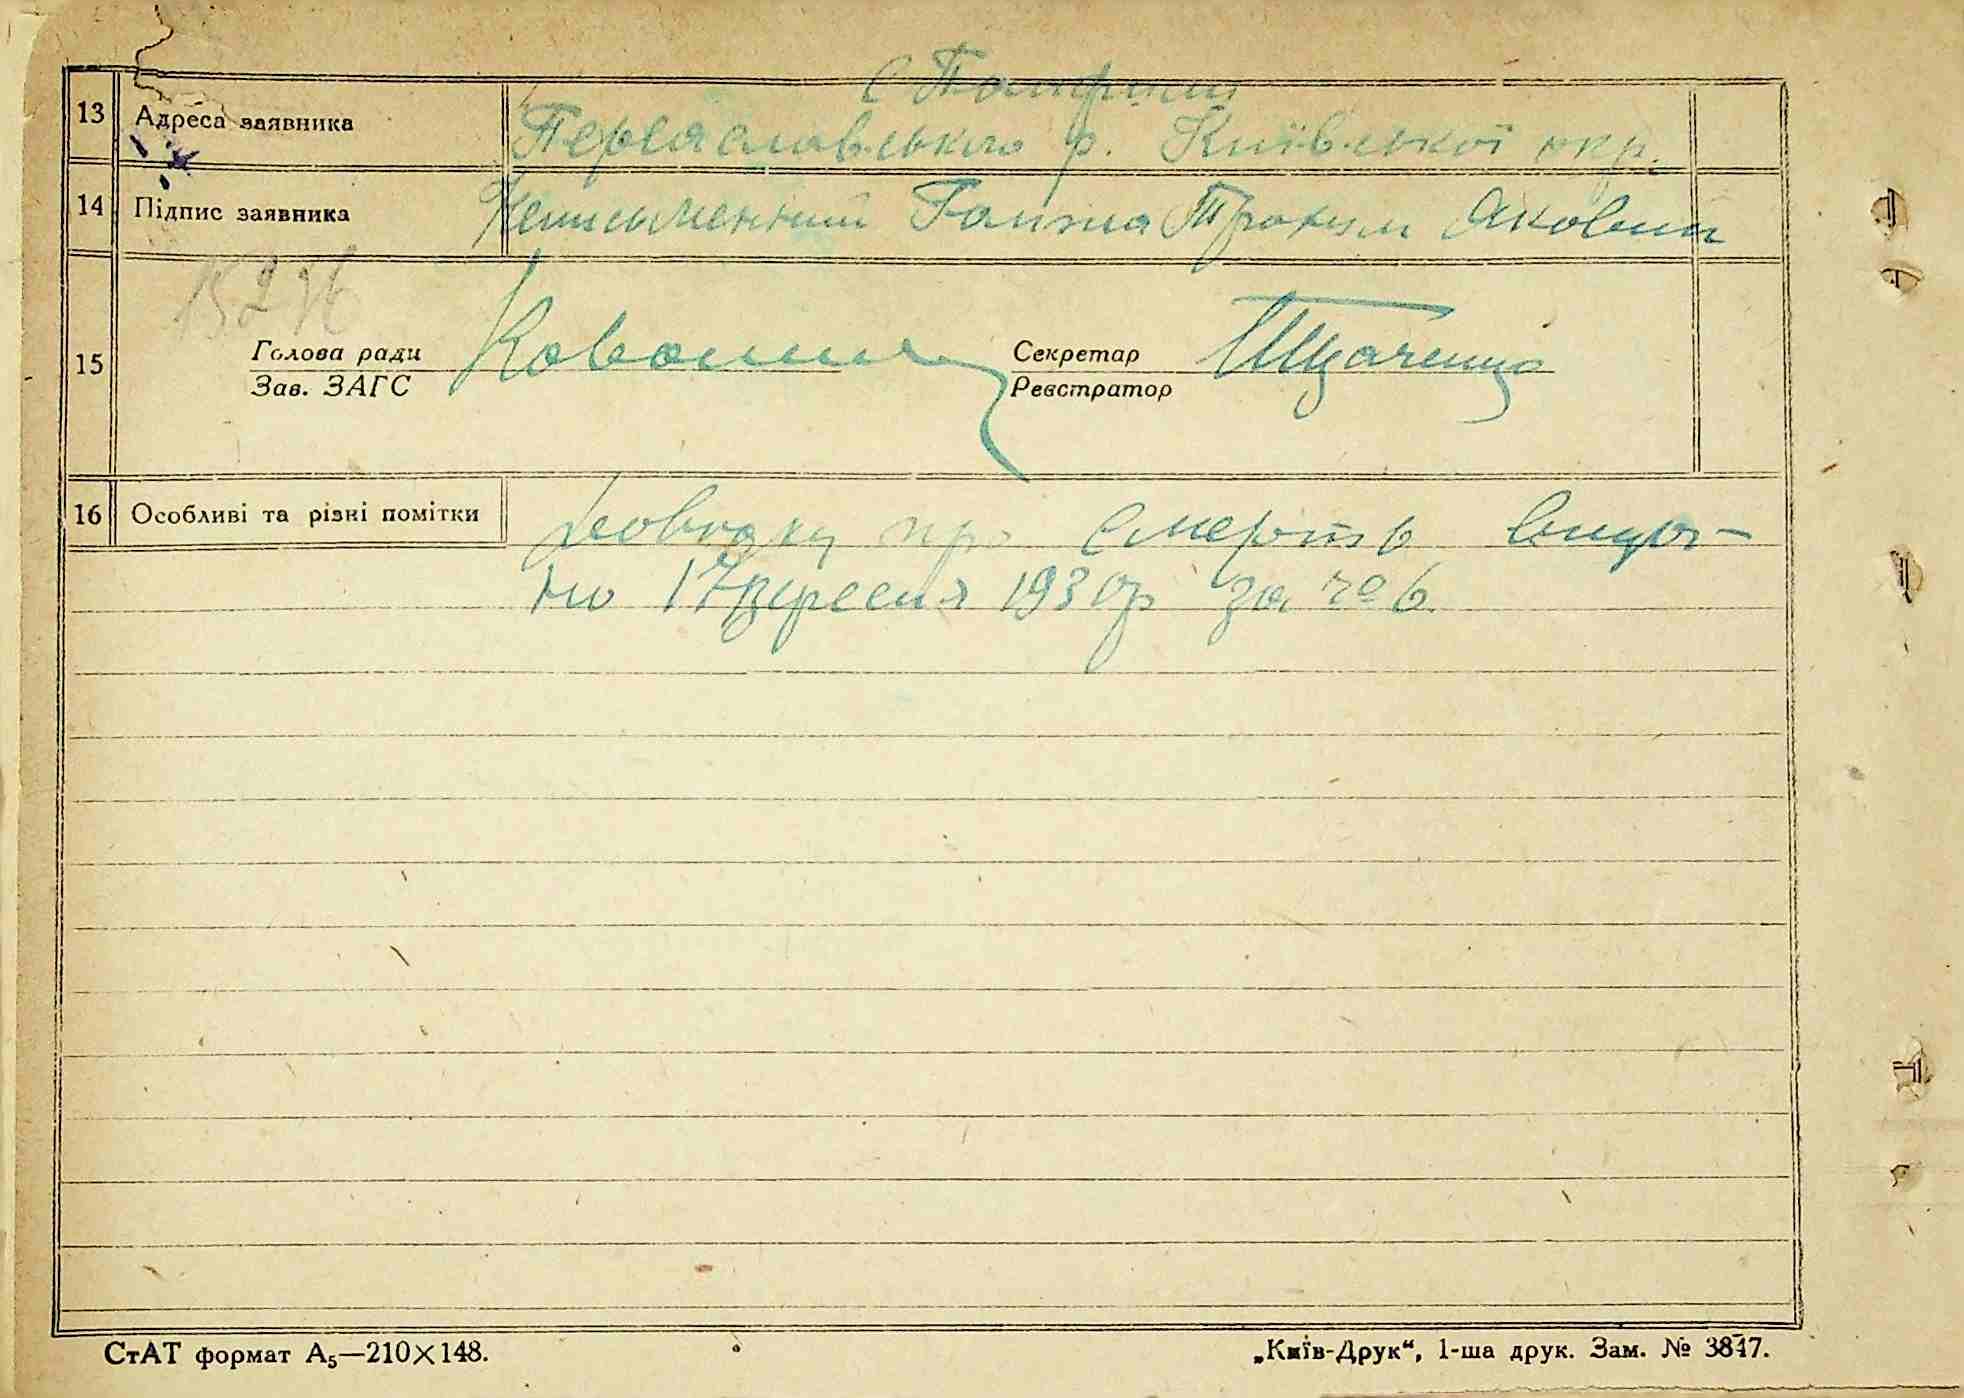 13 Адреса заявника
Переяславського р. Київської окр.
14 Підпис заявника Неписьменний Трохим Якович
15 Голова ради Секретар
Зав. ЗАГС Реєстратор
16 Особливі та різні помітки
Довідку про смерть видо-
но 17 вересня 1930 р за № 6
СтАТ формат А₅—210×148.
„Київ-Друк“, 1-ша друк. Зам. № 3847.